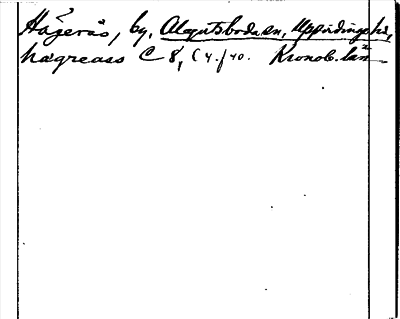 Hägerås, by, Algutsboda sn, Uppvidinge hd,
hægreaas C 8, (4./40. Kronob. län